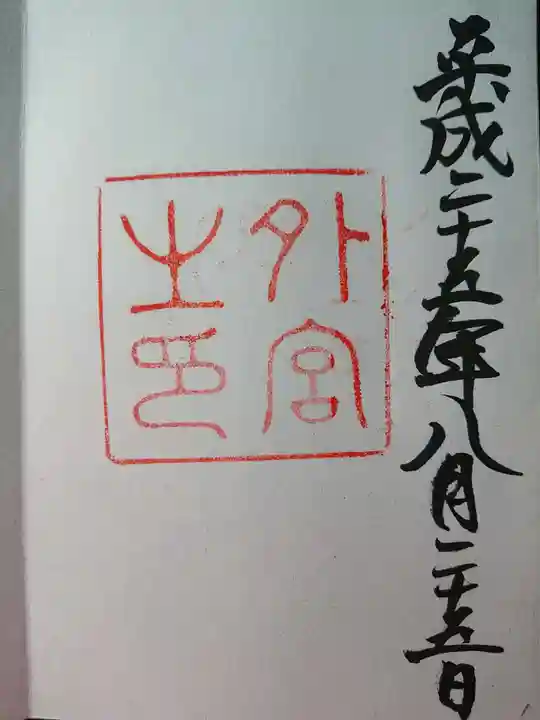 平成二十五年八月二十五日
外宮
之印